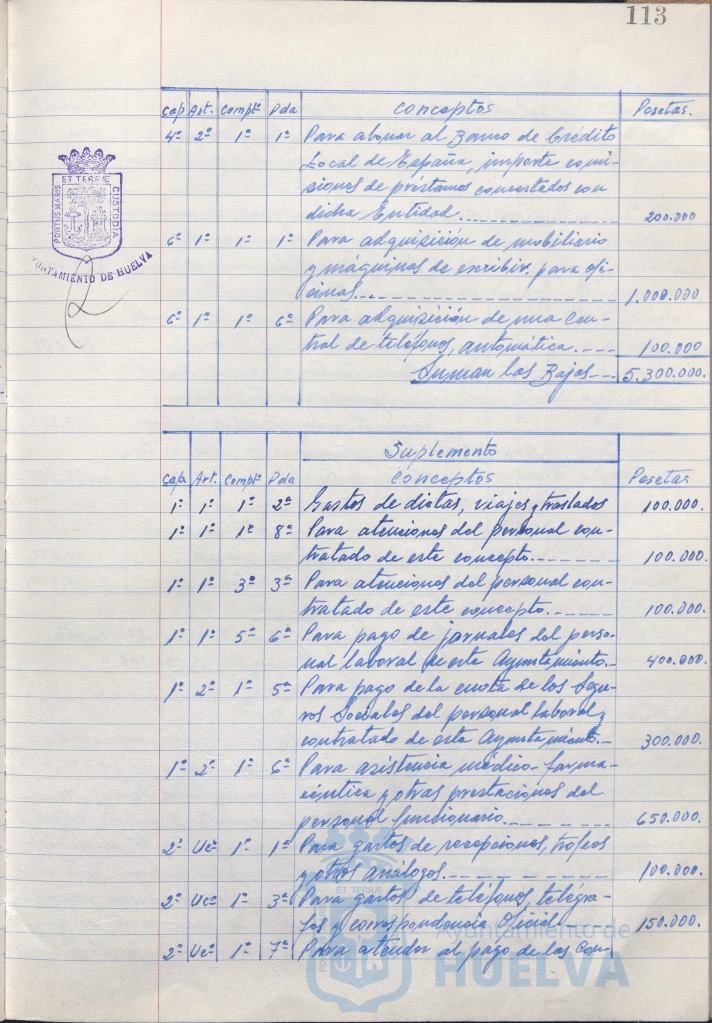 113
Cap Art. Comptº Pda Conceptos Pesetas.
4º 2º 1º 1º Para abonar al Banco de Crédito
Local de España, importe comi-
siones de préstamos concertados con
dicha Entidad. 200.000
6º 1º 1º 1º Para adquisición de mobiliario
y máquinas de escribir, para ofi-
cinas. 1.000.000
6º 1º 1º 6º Para adquisición de una cen-
tral de teléfonos, automática. 100.000
Suman las Bajas 5.300.000.
Suplemento
Cap. Art. Comptº Pda Conceptos Pesetas
1º 1º 1º 2ª Gastos de dietas, viajes y traslados 100.000.
1º 1º 1º 8ª Para atenciones del personal con-
tratado de este concepto. 100.000.
1º 1º 3º 3ª Para atenciones del personal con-
tratado de este concepto. 100.000
1º 1º 5º 6ª Para pago de jornales del perso-
nal laboral de este Ayuntamiento. 400.000.
1º 2º 1º 5ª Para pago de la cuota de los Segu-
ros Sociales del personal laboral y
contratado de este Ayuntamiento. 300.000.
1º 2º 1º 6ª Para asistencia médico-farma-
céutica y otras prestaciones del
personal funcionario. 650.000.
2º Ucº 1º 1ª Para gastos de recepciones, trofeos
y otros análogos. 100.000.
2º Ucº 1º 3ª Para gastos de teléfonos, telégra-
fos y correspondencia Oficial 150.000.
2º Ucº 1º 7ª Para atender al pago de las con-
ET TERRÆ
PORTUS MARIS
CUSTODIA
AYUNTAMIENTO DE HUELVA
ET TERRÆ
Ayuntamiento de
HUELVA